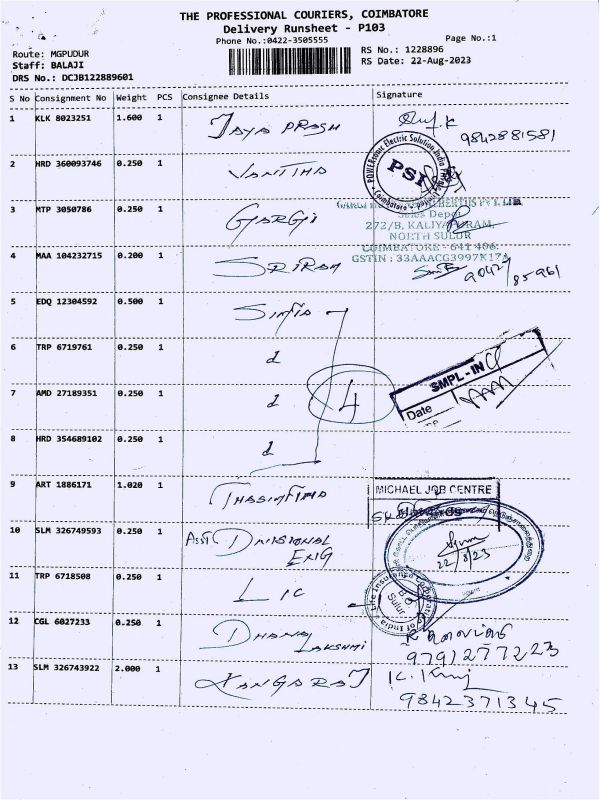 THE PROFESSIONAL COURIERS, COIMBATORE
Delivery Runsheet - P103
Phone No.:0422-3505555
Page No.:1
Route: MGPUDUR
Staff: BALAJI
DRS No.: DCJB122889601
RS No.: 1228896
RS Date: 22-Aug-2023
S No Consignment No Weight PCS Consignee Details Signature
1 KLK 8023251 1.600 1 JAYA PRASH
9842881581
POWERsonic Electric Solution India Private Limited
PSI
Coimbatore
2 HRD 360093746 0.250 1 VANITHA
3 MTP 3050786 0.250 1 GARGI
Sales Depot
272/B, KALIYAPURAM,
NORTH SULUR
COIMBATORE - 641 406.
GSTIN : 33AAACG3997K1ZA
4 MAA 104232715 0.200 1 SRIRAM
9042785961
5 EDQ 12304592 0.500 1
6 TRP 6719761 0.250 1 d
7 AMD 27189351 0.250 1 d
4
SMPL - IN
Date
8 HRD 354689102 0.250 1 d
9 ART 1886171 1.020 1
MICHAEL JOB CENTRE
10 SLM 326749593 0.250 1 ASST DIVISIONAL
ENG
22/8/23
11 TRP 6718508 0.250 1 LIC
Life Insurance Corporation of India
B.O.
Sulur
12 CGL 6027233 0.250 1 DHANA
LAKSHMI
9791277223
13 SLM 326743922 2.000 1 KANGARAJ
9842371345